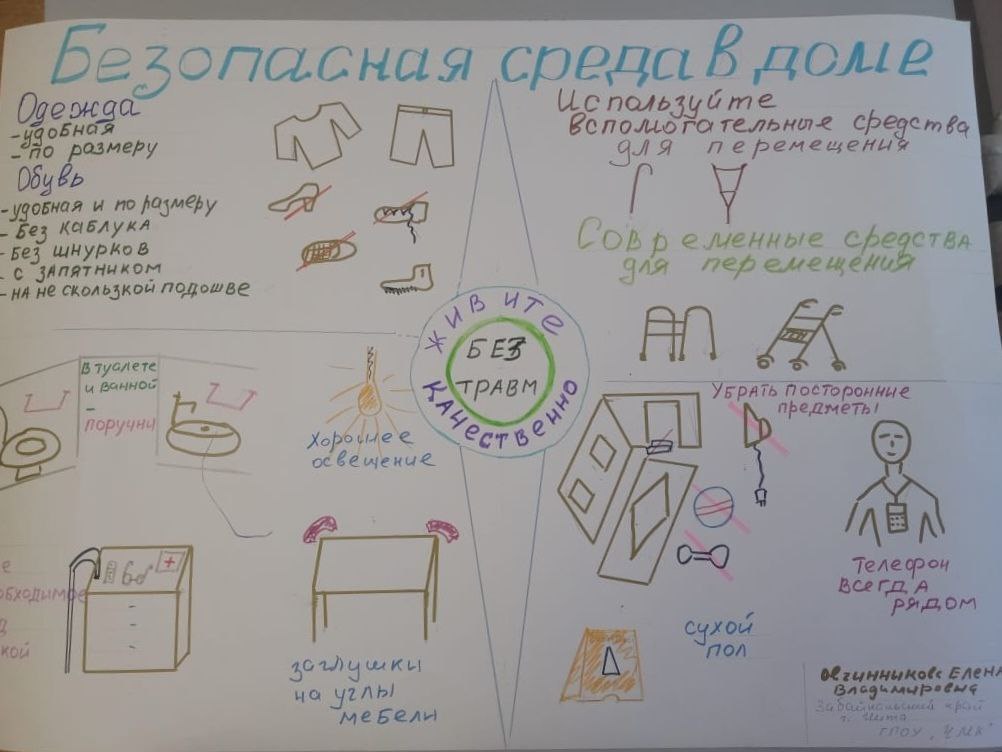 Безопасная среда в доме
Одежда
- удобная
- по размеру
Обувь
- удобная и по размеру
- Без каблука
- Без шнурков
- с запятником
- на не скользкой подошве
Используйте
вспомогательные средства
для перемещения
Современные средства
для перемещения
ЖИВИТЕ
КАЧЕСТВЕННО
БЕЗ
ТРАВМ
В туалете
и ванной
-
поручни
Хорошее
освещение
Убрать посторонние
предметы!
Телефон
всегда
рядом
обходимое
кой
заглушки
на углы
мебели
сухой
пол
Овчинникова Елена
Владимировна
Забайкальский край
г. Чита
ГПОУ "ЧМК"